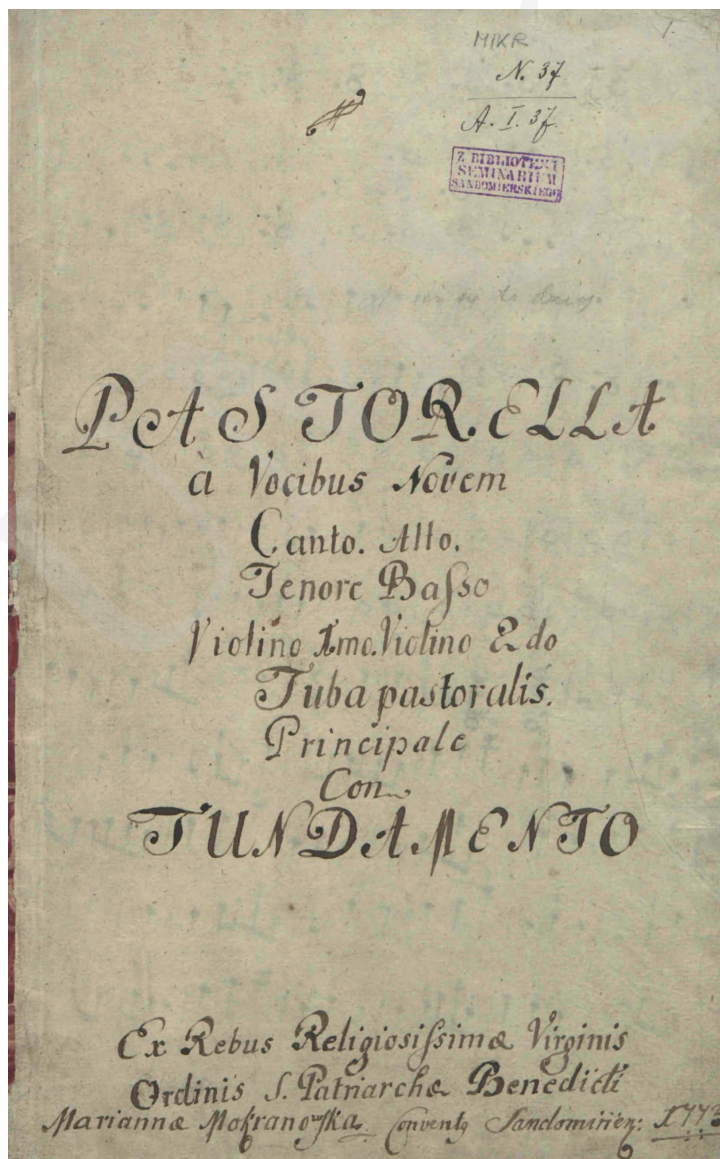 1.
MIKR
N. 37
A. I. 37.
Z BIBLIOTEKI
SEMINARIUM
SANDOMIERSKIEGO
PASTORELLA
à Vocibus Novem
Canto. Alto.
Tenore Baſso
Violino Imo. Violino 2do
Tuba pastoralis.
Principale
Con
FUNDAMENTO
Ex Rebus Religiosiſsimæ Virginis
Ordinis S. Patriarchæ Benedicti
Mariannæ Mokranowſka Sandomirien: 1773